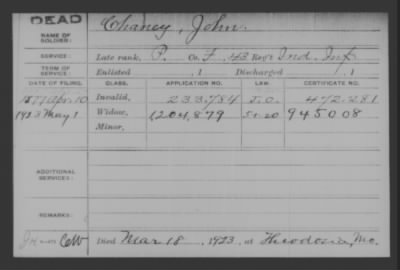 DEAD
NAME OF SOLDIER: Chaney, John.
SERVICE: Late rank, P. Co. F, 43 Reg't Ind. Inf.
TERM OF SERVICE: Enlisted , 1 Discharged , 1
DATE OF FILING. CLASS. APPLICATION NO. LAW. CERTIFICATE NO.
1877 Apr. 10 Invalid, 233,784 472,281
1923 May 1 Widow, 1204,879 5-1-20 945008
Minor,
ADDITIONAL SERVICES:
REMARKS:
Died Mar 18, 1923, at Theodosia, Mo.